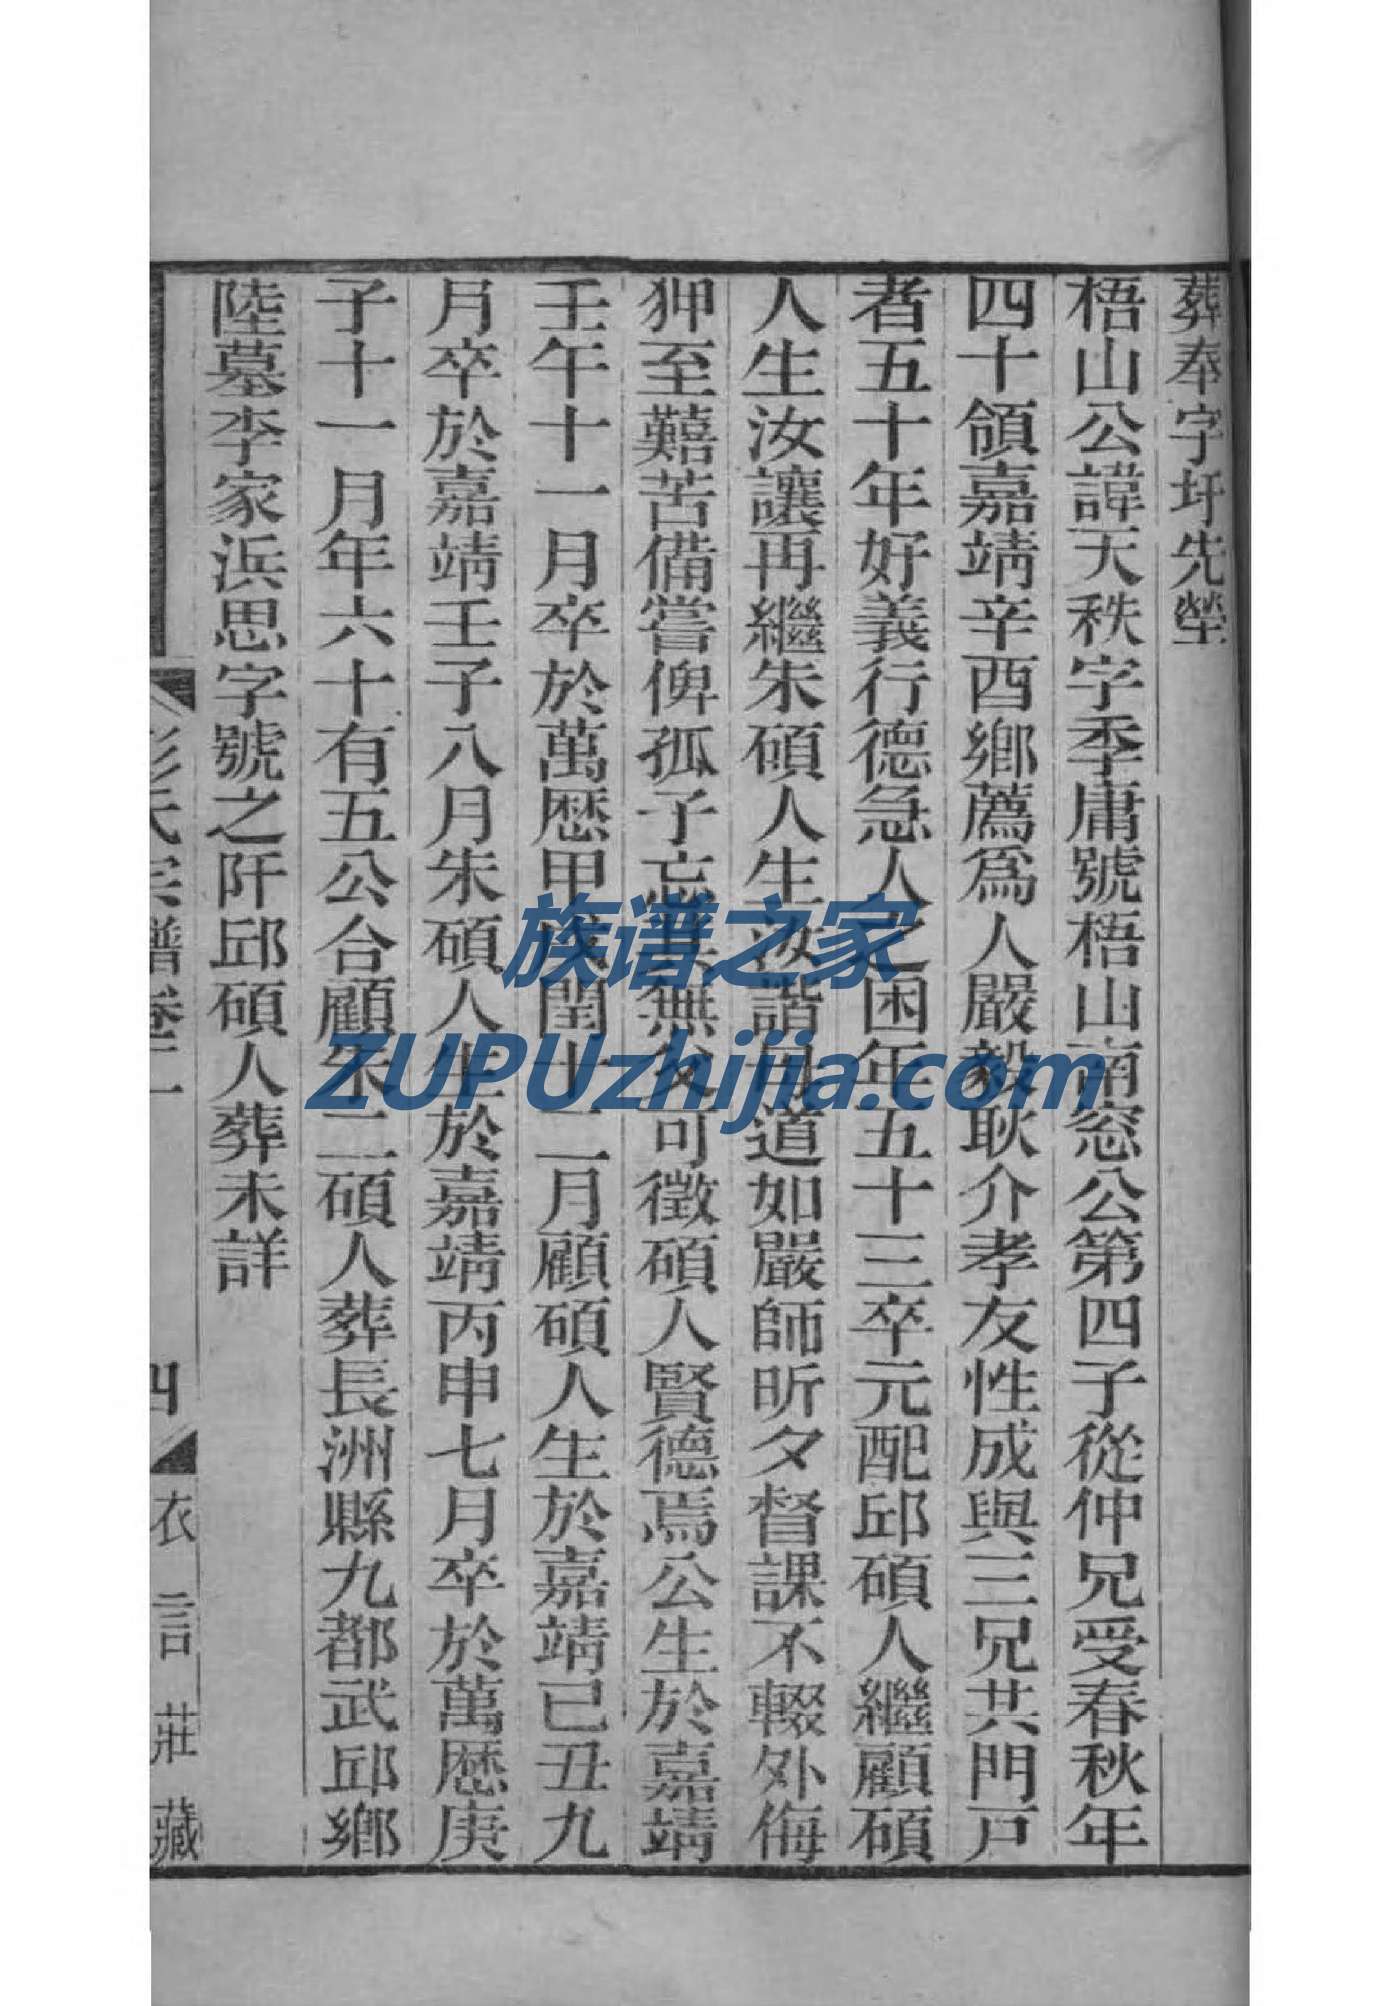 葬奉字圩先塋
梧山公諱天秩字季庸號梧山南窓公第四子從仲兄受春秋年
四十領嘉靖辛酉鄉薦爲人嚴毅耿介孝友性成與三兄共門戸
者五十年好義行德急人之困年五十三卒元配邱碩人繼顧碩
人生汝讓再繼朱碩人生汝諧母道如嚴師昕夕督課不輟外侮
狎至囏苦備嘗俾孤子忘其無父可徵碩人賢德焉公生於嘉靖
壬午十一月卒於萬歷甲戌閏十二月顧碩人生於嘉靖己丑九
月卒於嘉靖壬子八月朱碩人生於嘉靖丙申七月卒於萬歷庚
子十一月年六十有五公合顧朱二碩人葬長洲縣九都武邱鄉
陸墓李家浜思字號之阡邱碩人葬未詳
彭氏宗譜卷二 四 衣言莊藏
族谱之家
ZUPUzhijia.com